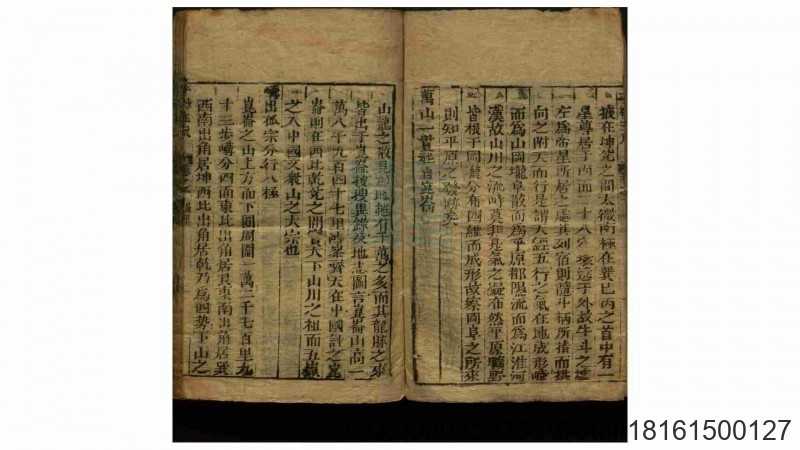 掖在坤兌之間太微兩極在巽巳丙之首中有一
星尊居于内而二十八宿遠于外故牛斗之墟
左爲帝星所居之處其列宿則隨斗柄所指而拱
向之附天而行是謂天經五行之氣在地成形峙
而爲山岡壠阜散而爲平原都隰流而爲江淮河
漢故山川之流峙莫非是氣之凝布然平原曠野
皆根于岡壠分布四維而成形故察岡阜之所來
則知平原之發跡矣
萬山一貫起自崑崙
山龍之散見于地絶有千萬之多而其龍脉之來
皆出于崑崙按搜異錄及地志圖言崑崙山高一
萬八千九百四十七里時峯齊天在中國計之崑
崙則在西北乾兌之間實天下山川之祖而五嶽
之八中國又衆山之大宗也
出孤宗分行八極
崑崙之山上方而下圓周圍一萬二千七百里九
十三步峨分四面東北出角居艮東南出角居巽
西南出角居坤西北出角居乾乃爲四勢下山之
18161500127